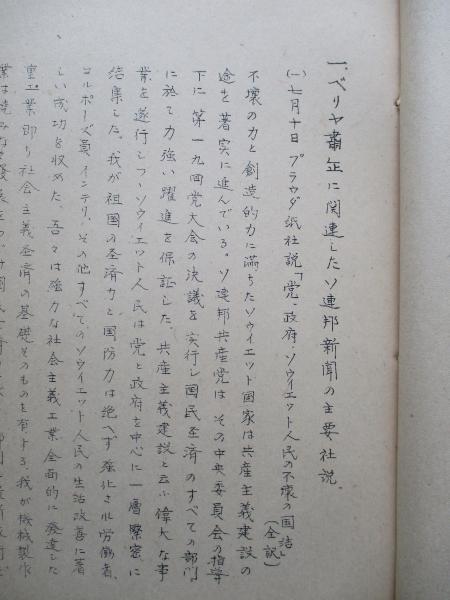 一、ベリヤ粛正に関連したソ連邦新聞の主要社説.
(一)七月十日 プラウダ紙社説「党・政府・ソウイエット人民の不壊の団結」
(全訳)
不壊の力と創造的力に満ちたソウイエット国家は共産主義建設の
途を着実に進んでいる。ソ連邦共産党は その中央委員会の指導
下に 第一九回党大会の決議を実行し国民圣済のすべての部門
に於て力強い躍進を保証した。共産主義建設と云ふ偉大な事
業を遂行しつゝソウイエット人民は党と政府を中心に一層緊密に
結集した。我が祖国の圣済力と国防力は絶へず強化され労働者、
コルホーズ員、インテリ、その他すべてのソウイエット人民の生活改善に著
しい成功を収めた。吾々は強力な社会主義工業、全面的に発達した
重工業即ち社会主義圣済の基礎そのものを有する。我が機械製作
業は